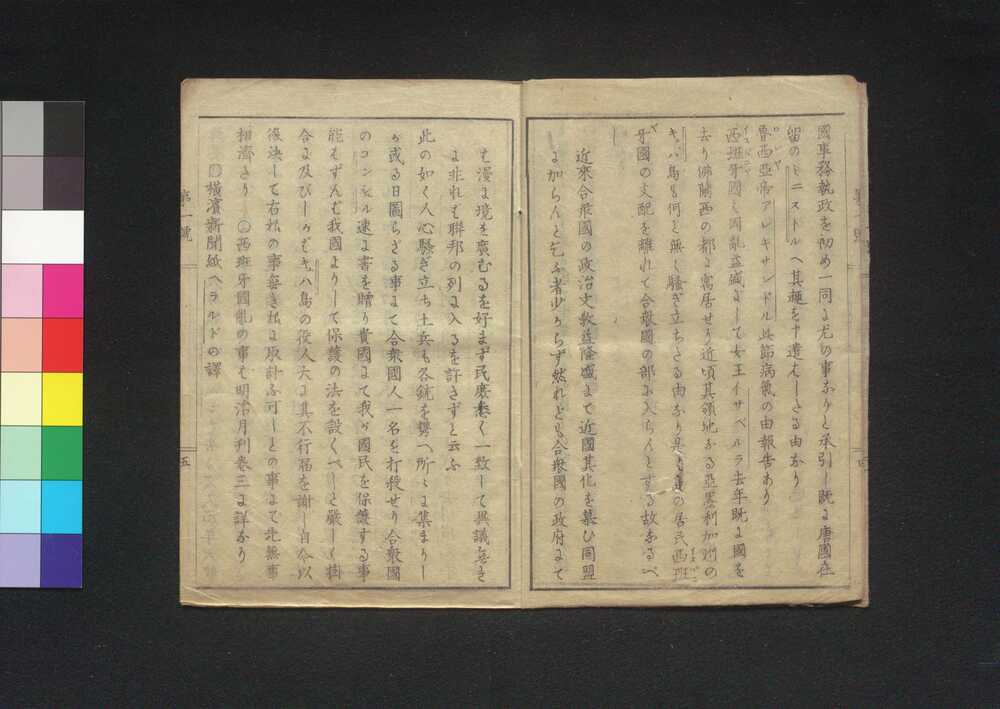 國事務執政を初め一同に尤の事なりと承引し既に唐國在
留のミニストルへ其趣を申遣はしたる由なり
魯西亞帝アレキサンドル此節病氣の由報告あり
西班牙國は国亂益盛にして女王イサベルラ去年既に國を
去り佛蘭西の都に寓居せり近頃其領地なる亞墨利加洲の
キュバ島も何と無く騷ぎ立ちたる由なり是は島の居民西班
牙國の支配を離れて合衆國の部に入らんとする故なるべ
し
近來合衆國の政治文教益隆盛にて近國其化を慕ひ同盟
に加らんと乞ふ者少からず然れども合衆國の政府にて
は漫に境を廣むるを好まず民庶悉く一致して異議無き
に非れば聯邦の列に入るを許さずと云ふ
此の如く人心騷ぎ立ち士兵も各銃を携へ所々に集まりし
が或る日圖らざる事にて合衆國人一名を打殺せり合衆國
のコンシュル速に書を贈り貴國にて我が國民を保護する事
能はずんば我國よりして保護の法を設くべしと嚴しく掛
合に及びしかばキュバ島の役人大に其不行屆を謝し自今以
後決して右様の事無き様に取計ふ可しとの事にて先無事
相濟たり 〇西班牙國亂の事は明治月刊巻三に詳なり
〇横濱新聞紙ヘラルドの譯
第一號
五